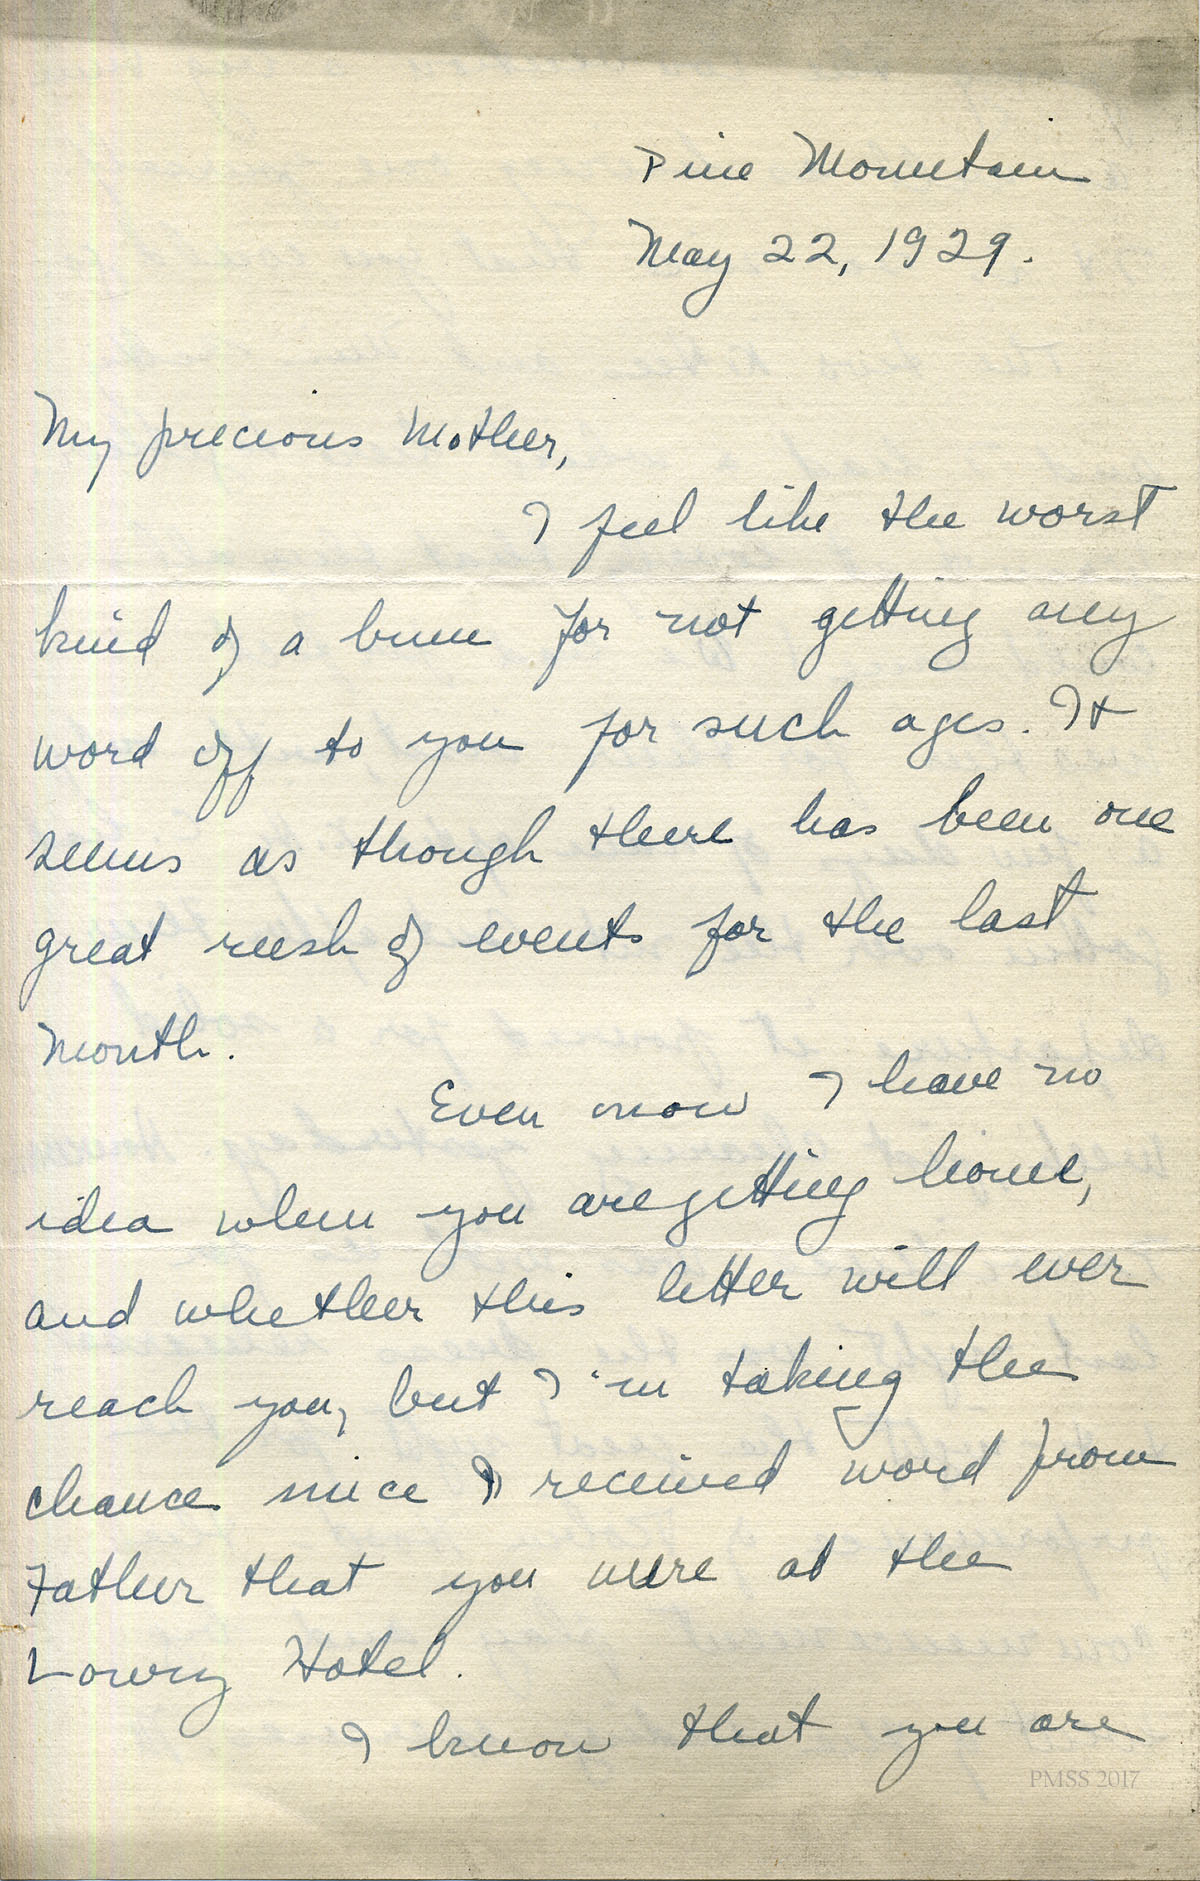 Pine Mountain
May 22, 1929.
My precious Mother,
I feel like the worst
kind of a bum for not getting any
word off to you for such ages. It
seems as though there has been one
great rush of events for the last
month.
Even now I have no
idea when you are getting home,
and whether this letter will ever
reach you, but I'm taking the
chance since I received word from
Father that you were at the
Lowry Hotel.
I know that you are
PMSS 2017